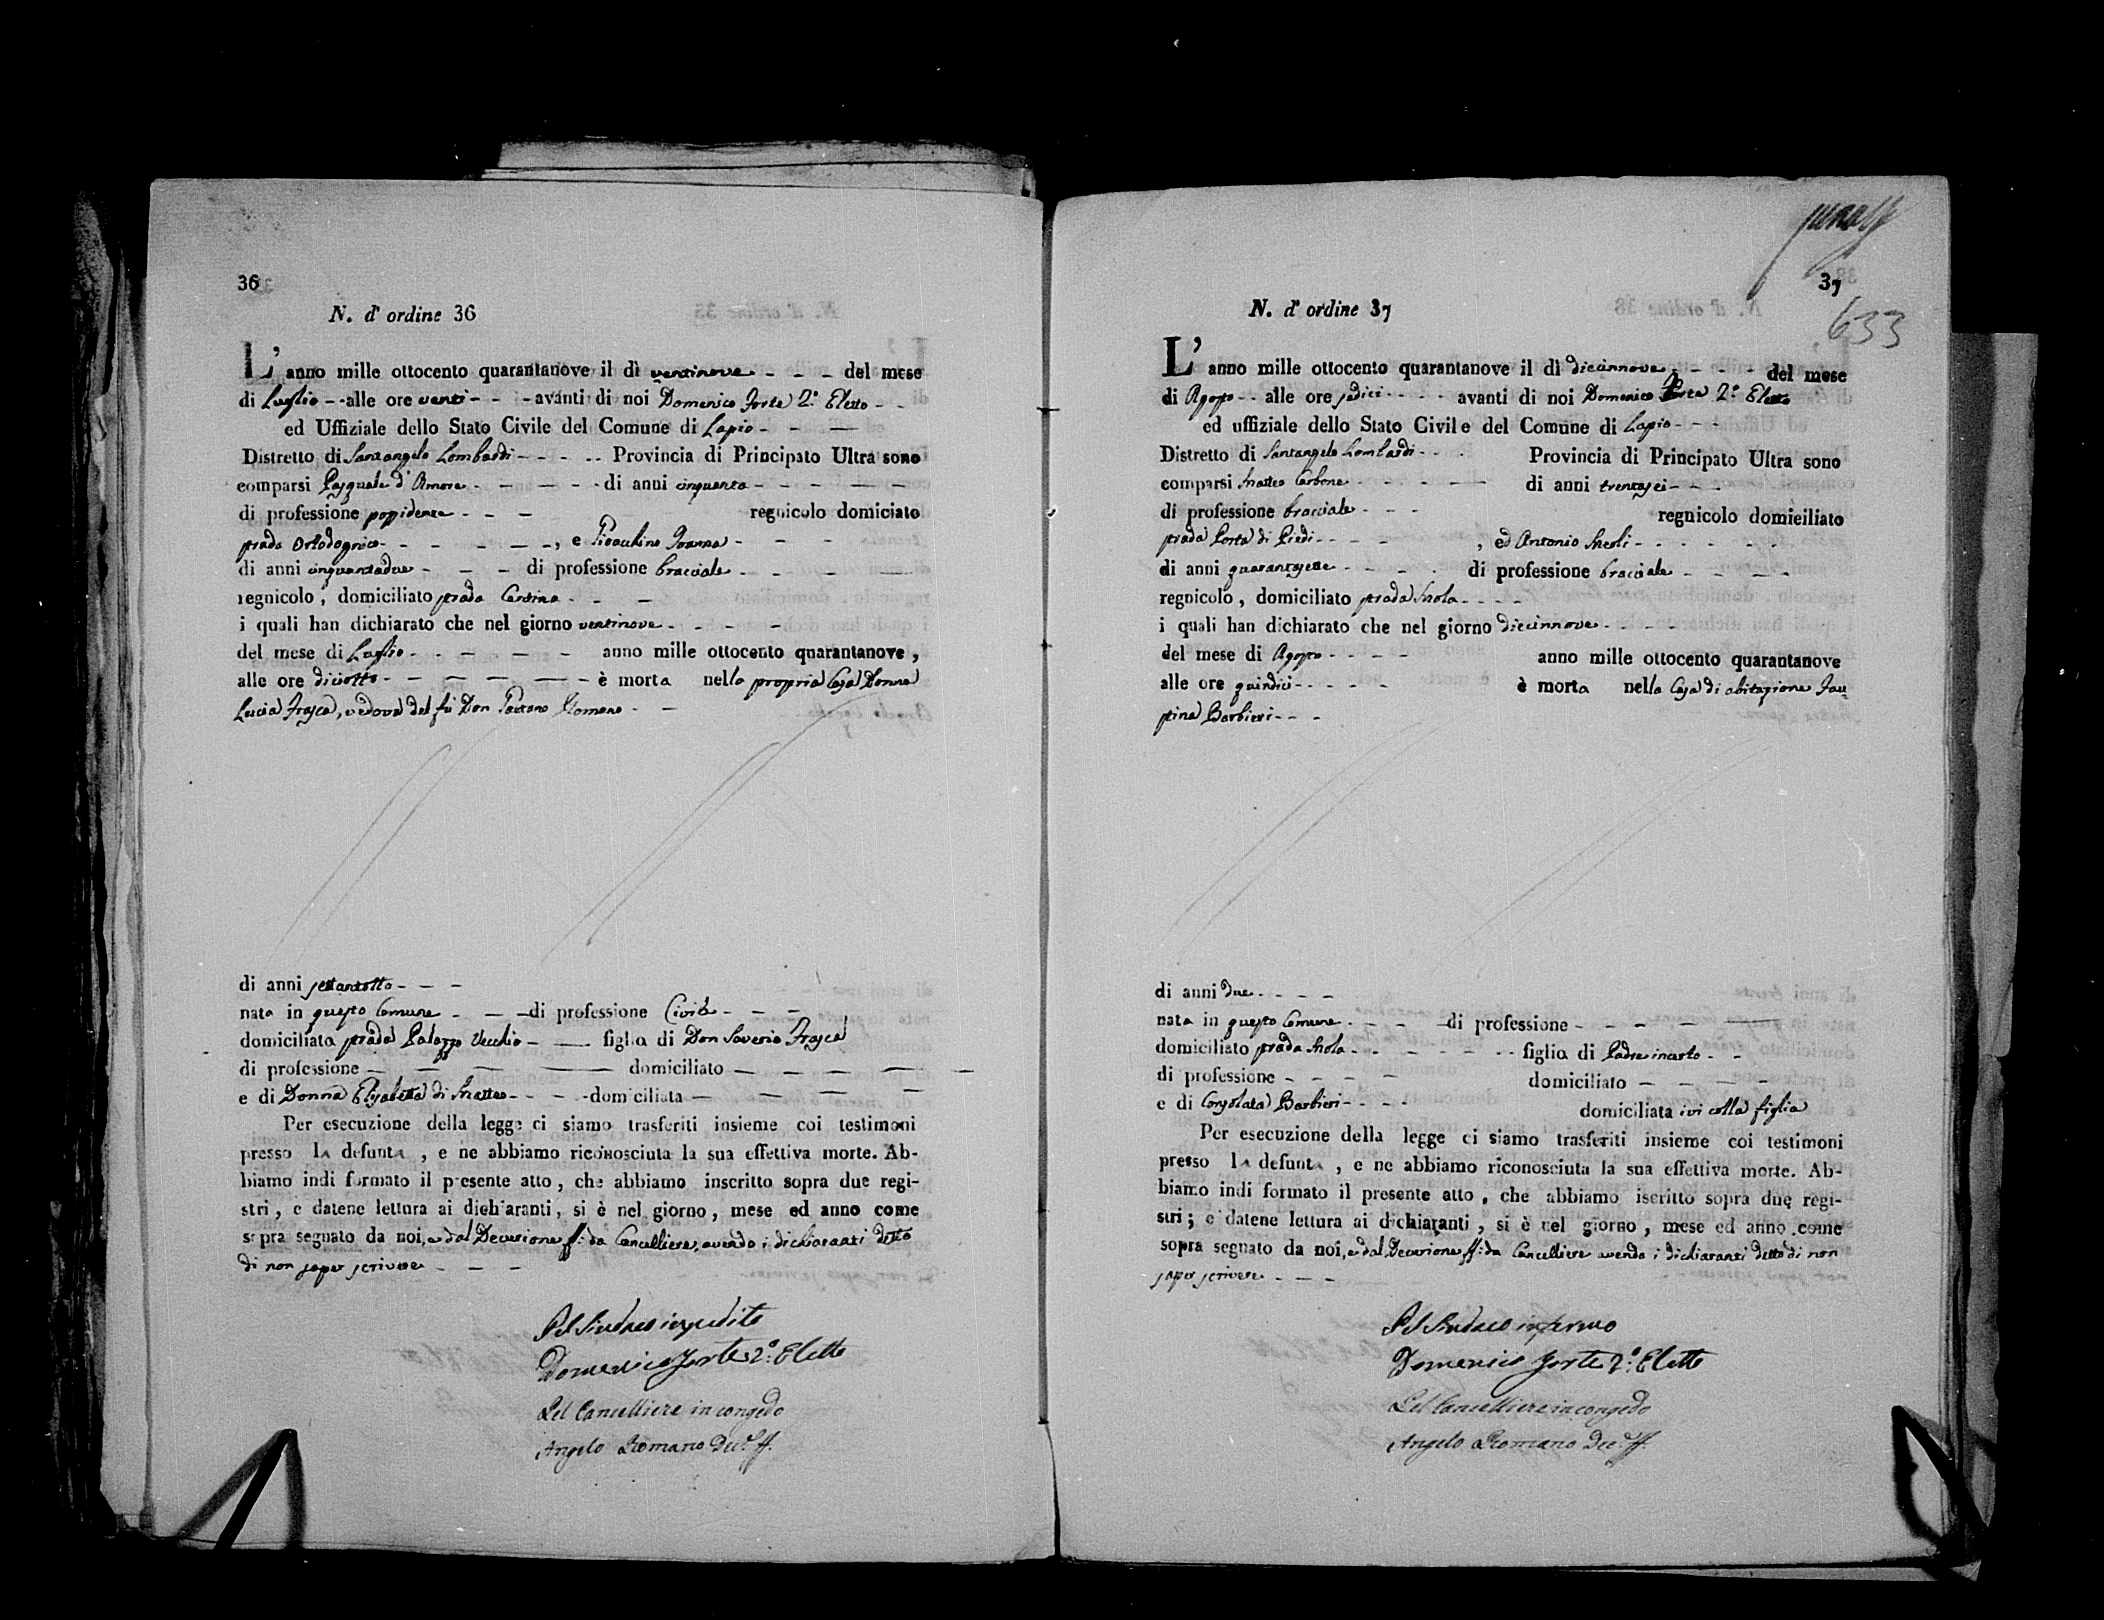 36
N. d' ordine 36
L' anno mille ottocento quarantanove il dì ventinove - - - del mese
di Luglio - - alle ore venti - - - avanti di noi Domenico Forte 2.° Eletto - -
ed Uffiziale dello Stato Civile del Comune di Lapio - - -
Distretto di Santangelo Lombardi - - - - Provincia di Principato Ultra sono
comparsi Pasquale d'Amore - - - - - di anni cinquanta - - - - -
di professione possidente - - - regnicolo domiciato
strada Ortodogrico - - - - - -, e Gioacchino - - -
di anni cinquantadue - - - di professione bracciale - - - -
regnicolo, domiciliato strada Cantina - - -
i quali han dichiarato che nel giorno ventinove - - - -
del mese di Luglio - - - - - anno mille ottocento quarantanove,
alle ore diciotto - - - - - è morta nella propria Casa Donna
Lucia Frasca, vedova del fu Don Gaetano Romano - -
di anni settantotto - - -
nata in questo Comune - - - di professione Civile - - -
domiciliata strada Palazzo Vecchio - - figlia di Don Saverio Frasca
di professione - - - - domiciliato - - - - - -
e di Donna Elisabetta di Matteo - - - - domiciliata - - - -
Per esecuzione della legge ci siamo trasferiti insieme coi testimoni
presso la defunta, e ne abbiamo riconosciuta la sua effettiva morte. Ab-
biamo indi formato il presente atto, che abbiamo inscritto sopra due regi-
stri, e datene lettura ai dichiaranti, si è nel giorno, mese ed anno come
sopra segnato da noi, e dal Decurione ff: da Cancelliere, avendo i dichiaranti detto
di non saper scrivere - - -
Pel Sindaco impedito
Domenico Forte 2.° Eletto
Pel Cancelliere in congedo
Angelo Romano Dec.e ff.
37
633
N. d' ordine 37
L' anno mille ottocento quarantanove il dì diecinnove - - - - del mese
di Agosto - - alle ore sedici - - - - avanti di noi Domenico Forte 2.° Eletto
ed uffiziale dello Stato Civile del Comune di Lapio - - -
Distretto di Santangelo Lombardi - - - Provincia di Principato Ultra sono
comparsi Matteo Carbone - - - - - di anni trentasei - - -
di professione bracciale - - - regnicolo domieiliato
strada Porta di Piedi - - - -, ed Antonio Meoli - - - - - -
di anni quarantasette - - - - di professione bracciale - - - -
regnicolo, domiciliato strada Mola - - - -
i quali han dichiarato che nel giorno diecinnove - - - -
del mese di Agosto - - - - anno mille ottocento quarantanove
alle ore quindici - - - - - è morta nella Casa di abitazione Fau=
stina Barbieri - - -
di anni due - - - -
nata in questo Comune - - - - di professione - - - - -
domiciliato strada Mola - - - - - - - figlia di Padre incerto - -
di professione - - - - domiciliato - - - -
e di Consolata Barbieri - - - - domiciliata ivi colla figlia
Per esecuzione della legge ci siamo trasferiti insieme coi testimoni
presso la defunta, e ne abbiamo riconosciuta la sua effettiva morte. Ab-
biamo indi formato il presente atto, che abbiamo iscritto sopra due regi-
stri; e datene lettura ai dichiaranti, si è nel giorno, mese ed anno come
sopra segnato da noi, e dal Decurione ff: da Cancelliere avendo i dichiaranti detto di non
saper scrivere - - -
Pel Sindaco infermo
Domenico Forte 2.° Eletto
Pel Cancelliere in congedo
Angelo Romano Dec.e ff.